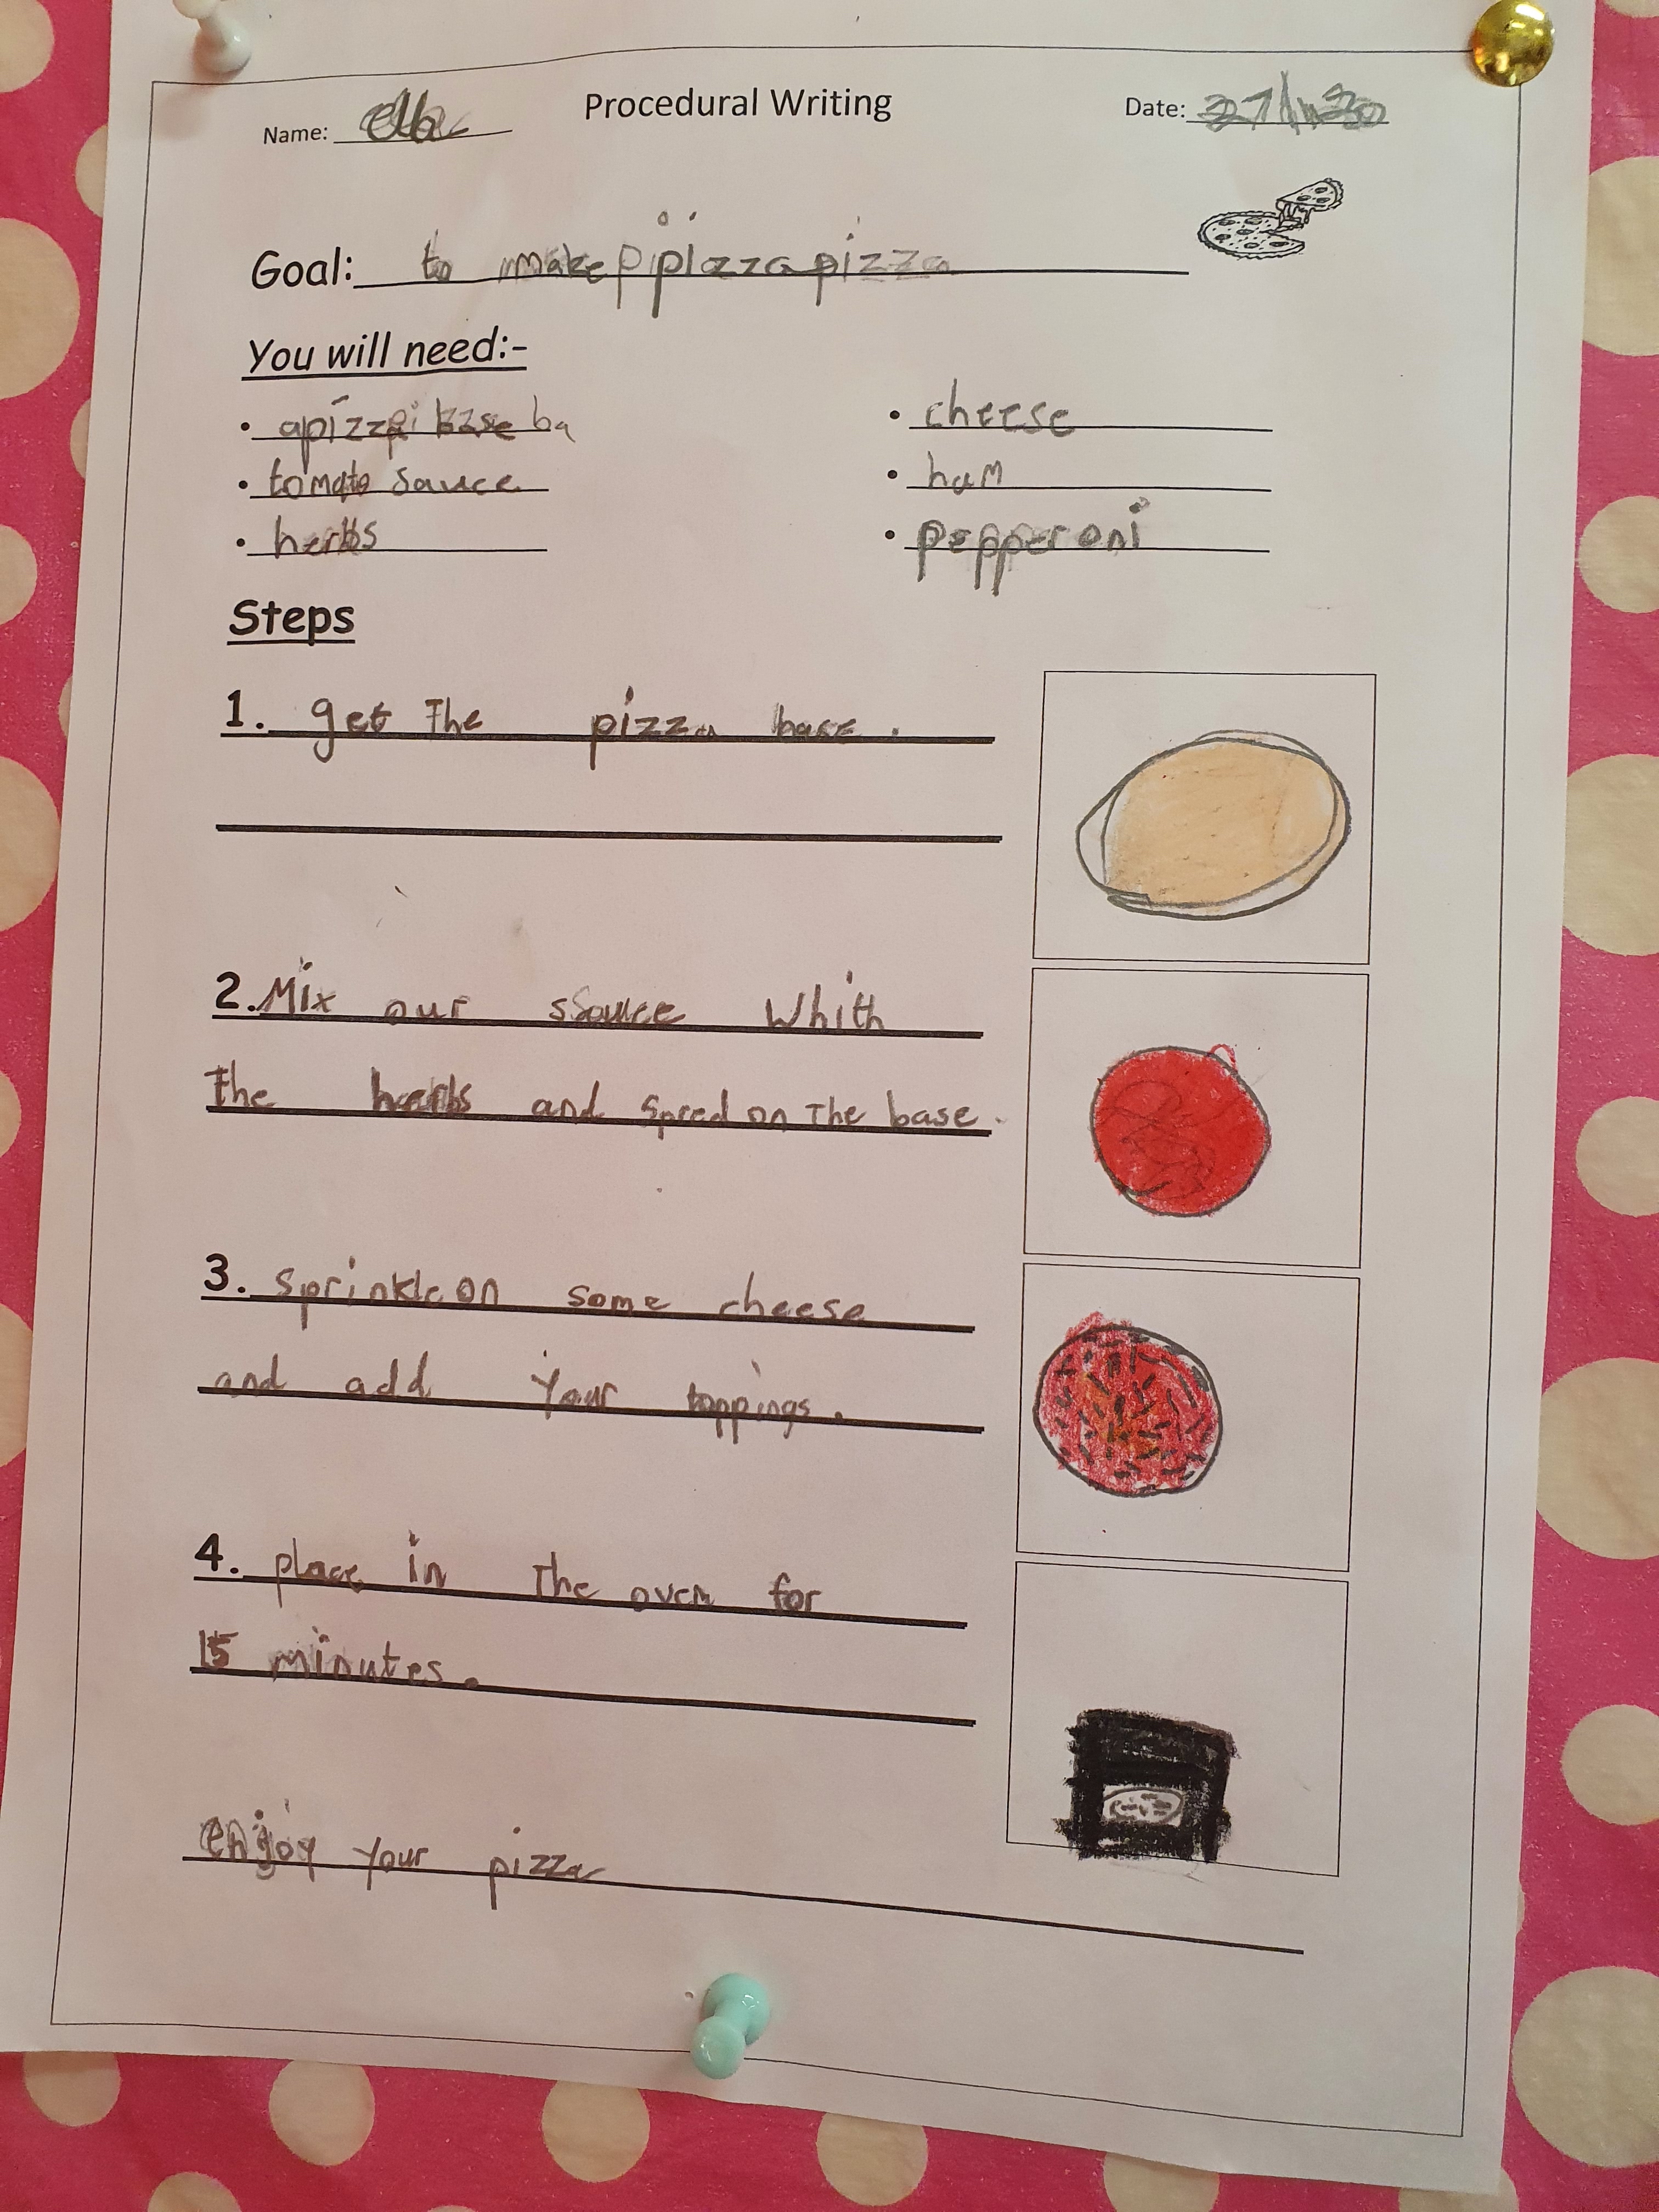 Procedural Writing
Name: Ella
Date:
Goal: to make pizza pizza
You will need:-
• a pizza base ba
• tomato sauce
• herbs
• cheese
• ham
• pepperoni
Steps
1. get The pizza base.
2. Mix our sauce Whith
the herbs and spred on The base.
3. sprinkle on some cheese
and add your toppings.
4. place in The oven for
15 minutes.
enjoy your pizza